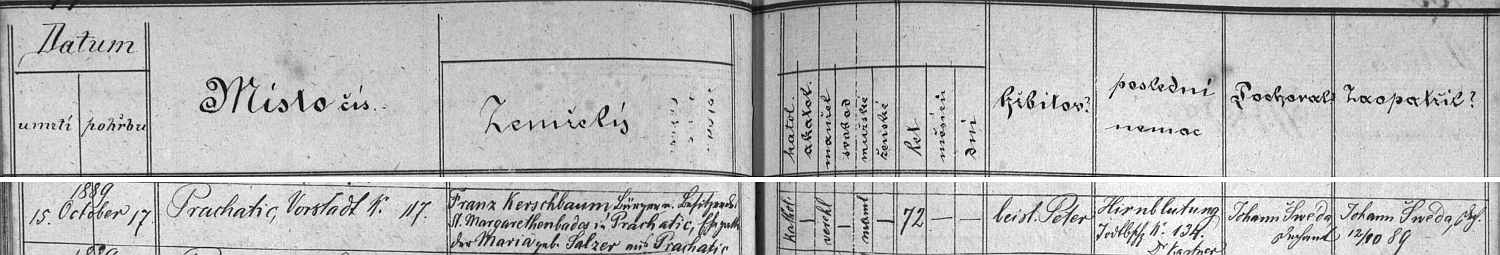 Datum
umrtí pohřbu
Místo čís.
Zemřelý
katol.
akatol.
manžel
svobod
mužské
ženské
Let
měsíců
dní
hřbitov?
poslední
nemoc
Pochoval
Zaopatřil?
1889
15. October 17.
Prachatic, Vorstadt N. 117.
Franz Kerschbaum Bürger u. Besitzer des
St. Margarethenbades in Prachatic, Ehegatte
der Maria geb. Salzer aus Prachatic
kathol.
verehl
männl
72 —
bei st. Peter
Hirnblutung
Todtbsch N. 134.
Dr Kastner
Johann Sweda,
Dechant
Johann Sweda, Dech.
12/10 89